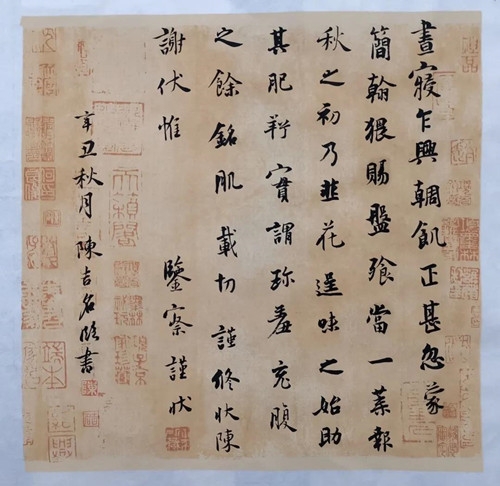 晝寢乍興輖飢正甚忽蒙
簡翰猥賜盤飱當一葉報
秋之初乃韭花逞味之始助
其肥羜實謂珎羞充腹
之餘銘肌載切謹修狀陳
謝伏惟 鑒察謹狀
辛丑秋月陳吉名臨書